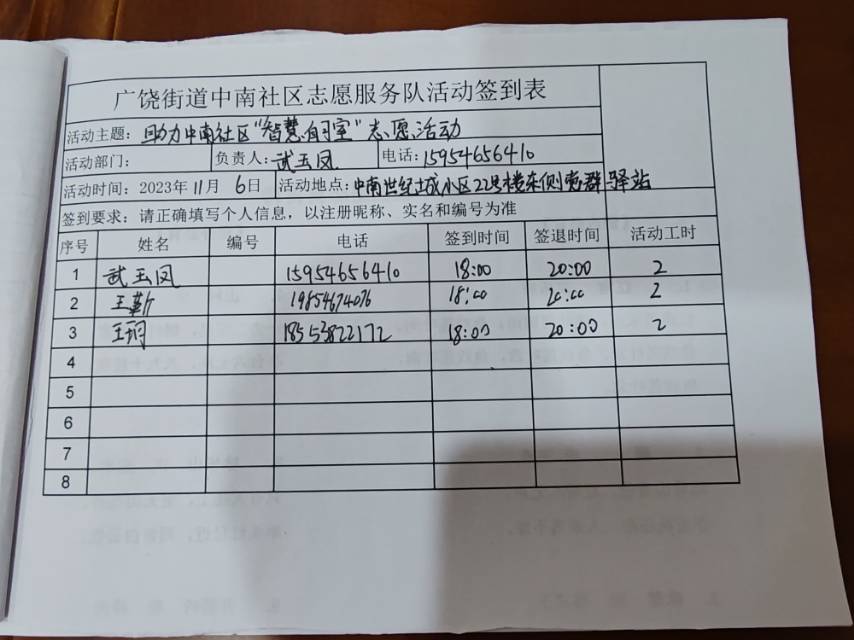 广饶街道中南社区志愿服务队活动签到表
活动主题：助力中南社区“智慧自习室”志愿活动
活动部门： 负责人：武玉凤 电话：15954656410
活动时间：2023年11月6日 活动地点：中南世纪城小区22号楼东侧党群驿站
签到要求：请正确填写个人信息，以注册昵称、实名和编号为准
序号 姓名 编号 电话 签到时间 签退时间 活动工时
1 武玉凤 15954656410 18:00 20:00 2
2 王 19854674076 18:00 20:00 2
3 王玥 18553822172 18:00 20:00 2
4
5
6
7
8